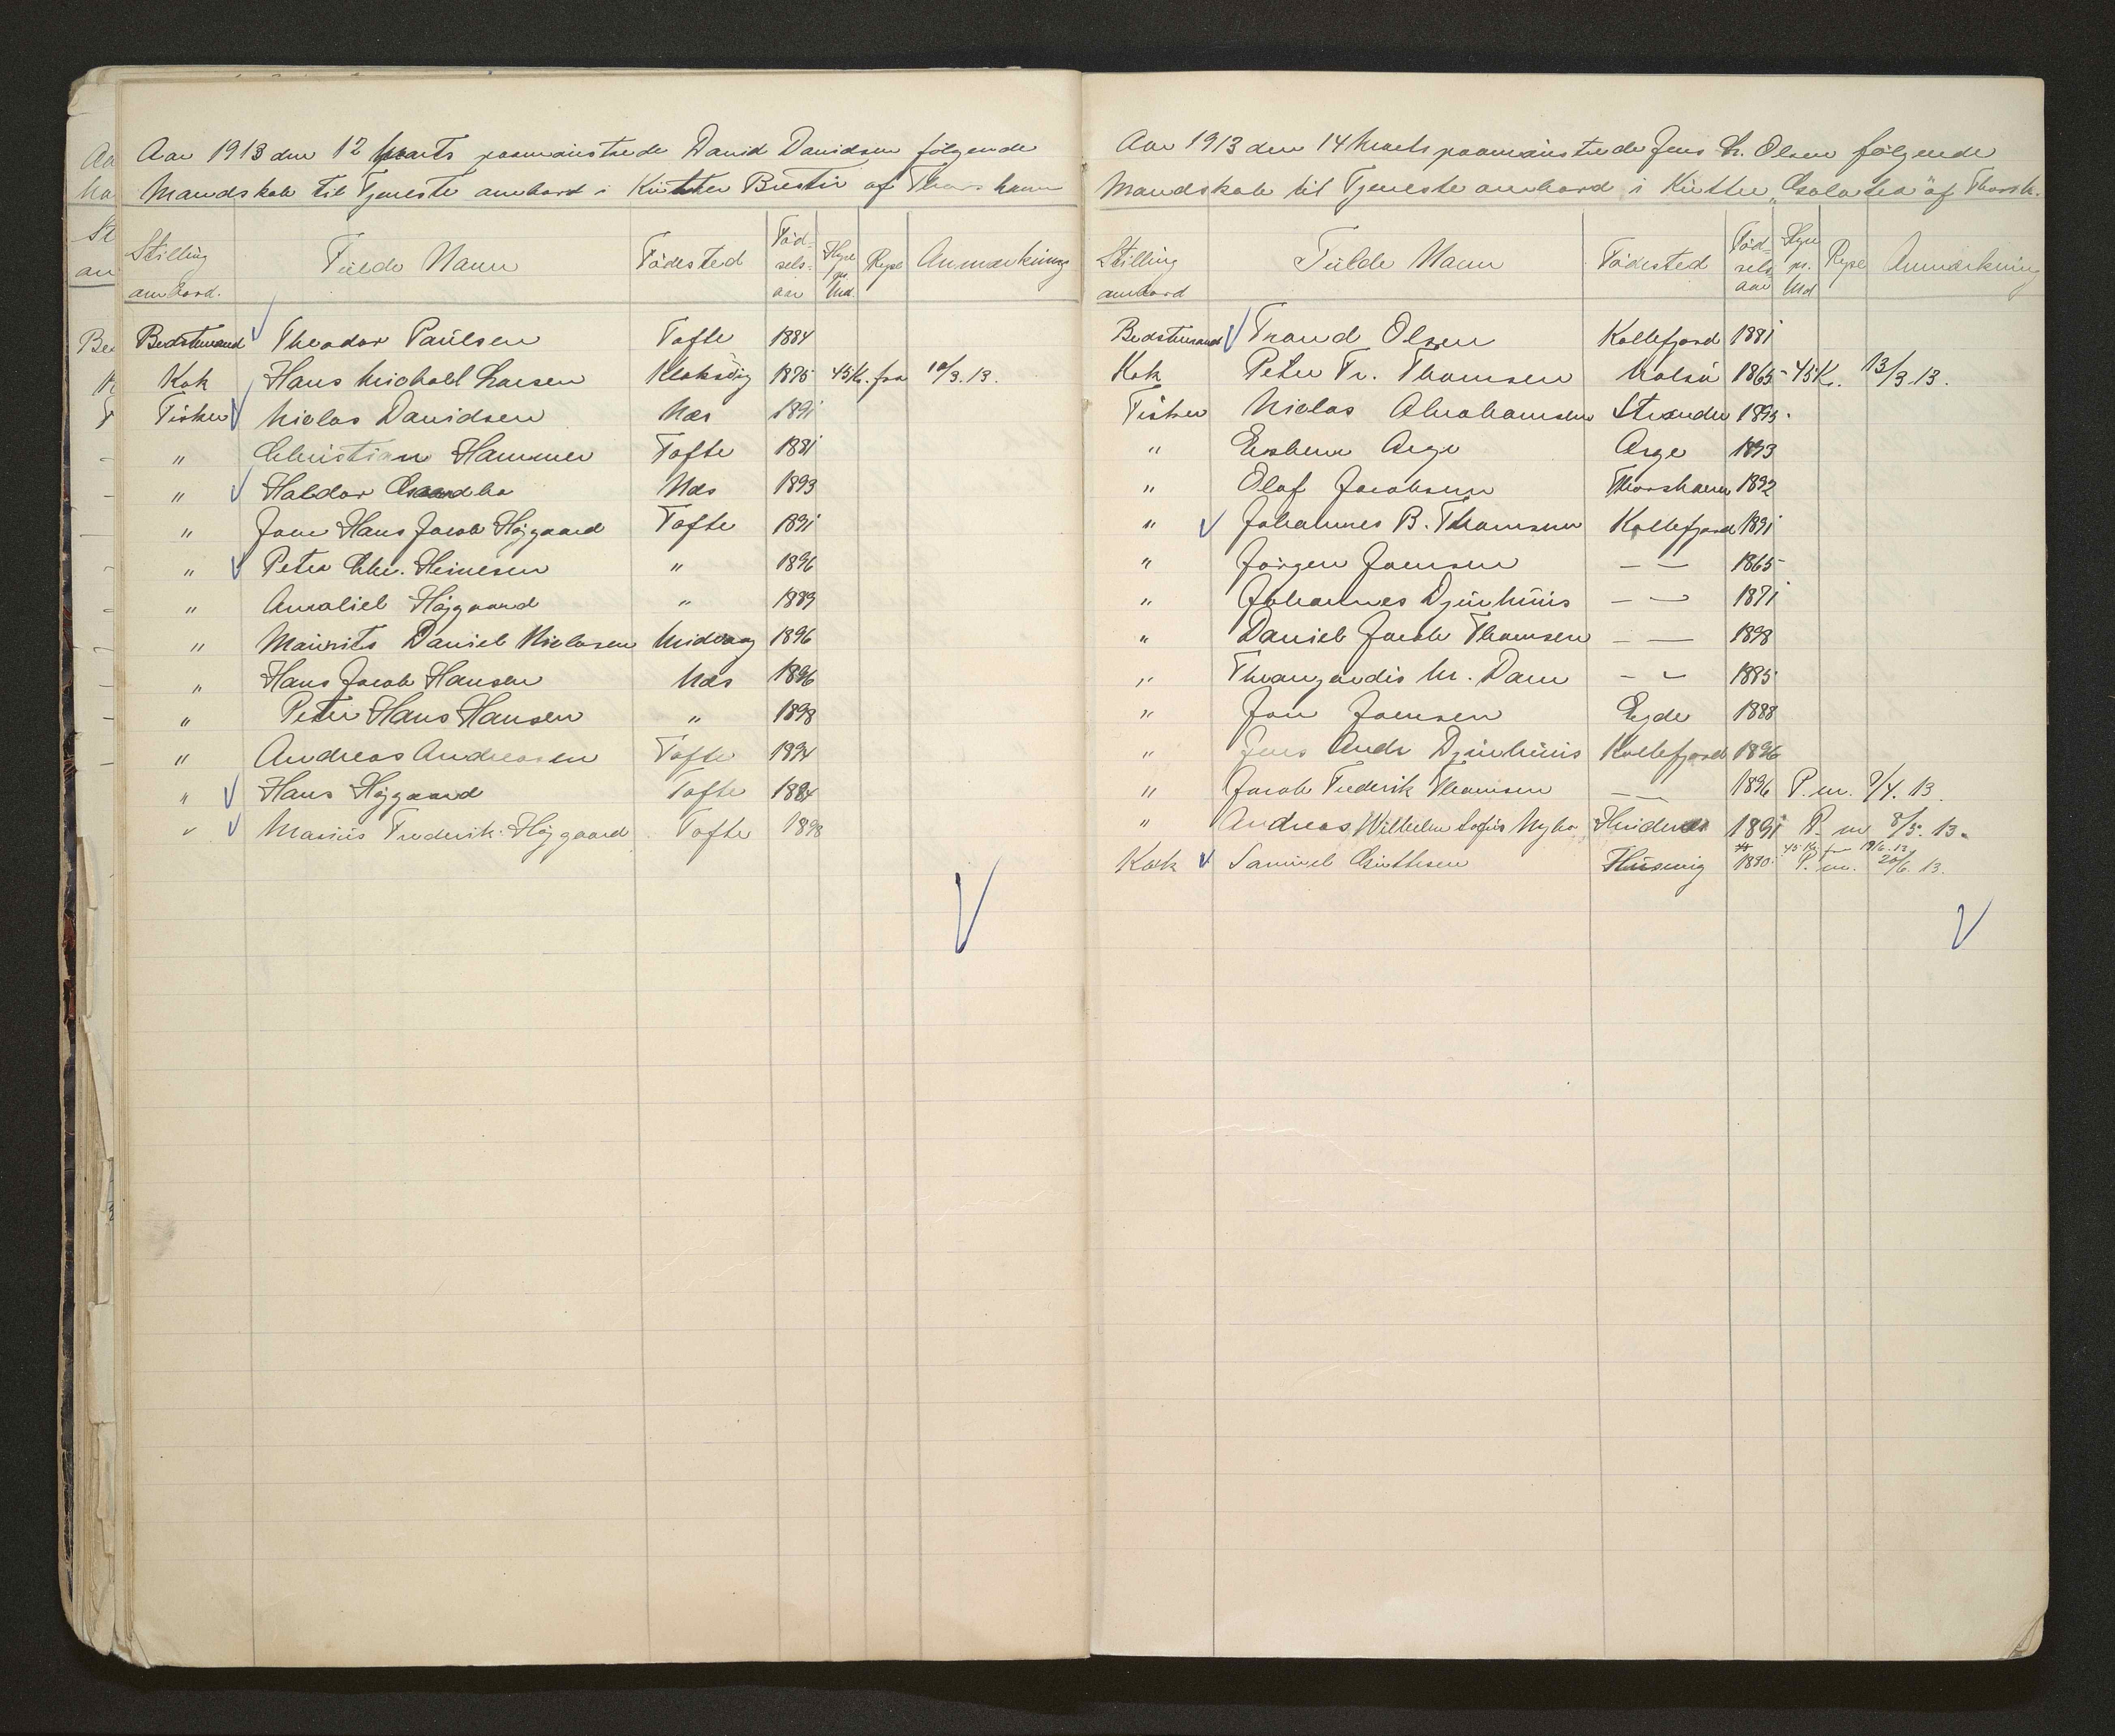 Aar 1913 den 12 Marts paamønstrede David Davidsen følgende
Mandskab til Tjeneste ombord i Kutter Brestir af Thorshavn
Stilling ombord. Fulde Navn Fødested Fødselsaar Hyre pr. Md. Rejse Anmærkning
Bedstemand Theodor Paulsen Tofte 1884
Kok Hans Michael Larsen Klaksvig 1875 45 Kr. fra 10/3.13.
Fisker Niclas Davidsen Næs 1891
" Christian Hammer Tofte 1881
" Haldor Næs 1893
" Joen Hans Jacob Højgaard Tofte 1891
" Peter Chr. Heinesen " 1896
" Amaliel Højgaard " 1889
" Maurits Daniel Niclasen Midvaag 1896
" Hans Jacob Hansen Næs 1896
" Peter Hans Hansen " 1898
" Andreas Andreasen Tofte 1894
" Hans Højgaard Tofte 1884
" Marius Frederik Højgaard Tofte 1898
Aar 1913 den 14 Marts paamønstrede Jens Olsen følgende
Mandskab til Tjeneste ombord i Kutter "Galatea" af Thorsh.
Stilling ombord Fulde Navn Fødested Fødselsaar Hyre pr. Md Rejse Anmærkning
Bedstemand Trond Olsen Kollefjord 1881
Kok Peter Fr. Thomsen Nolsø 1865 45 Kr. 13/3.13.
Fisker Niclas Abrahamsen Strænder 1893.
" Esbern Arge Arge 1893
" Olaf Jacobsen Thorshavn 1892
" Johannes B. Thomsen Kollefjord 1891
" Jørgen Joensen — — 1865
" Johannes Djurhuus — — 1871
" Daniel Jacob Thomsen — — 1898
" M. Dam — — 1885
" Jon Joensen Ejde 1888
" Jens Andr Djurhuus Kollefjord 1896
" Jacob Frederik Thomsen — 1896 P. m. 9/4.13.
" Andreas Wilhelm Sofus Nybo Hvidenæs 1891 P. m. 8/5.13.
Kok Samuel Guttesen Husevig 1890 45 Kr. fra 19/6.13 P. m. 20/6.13.